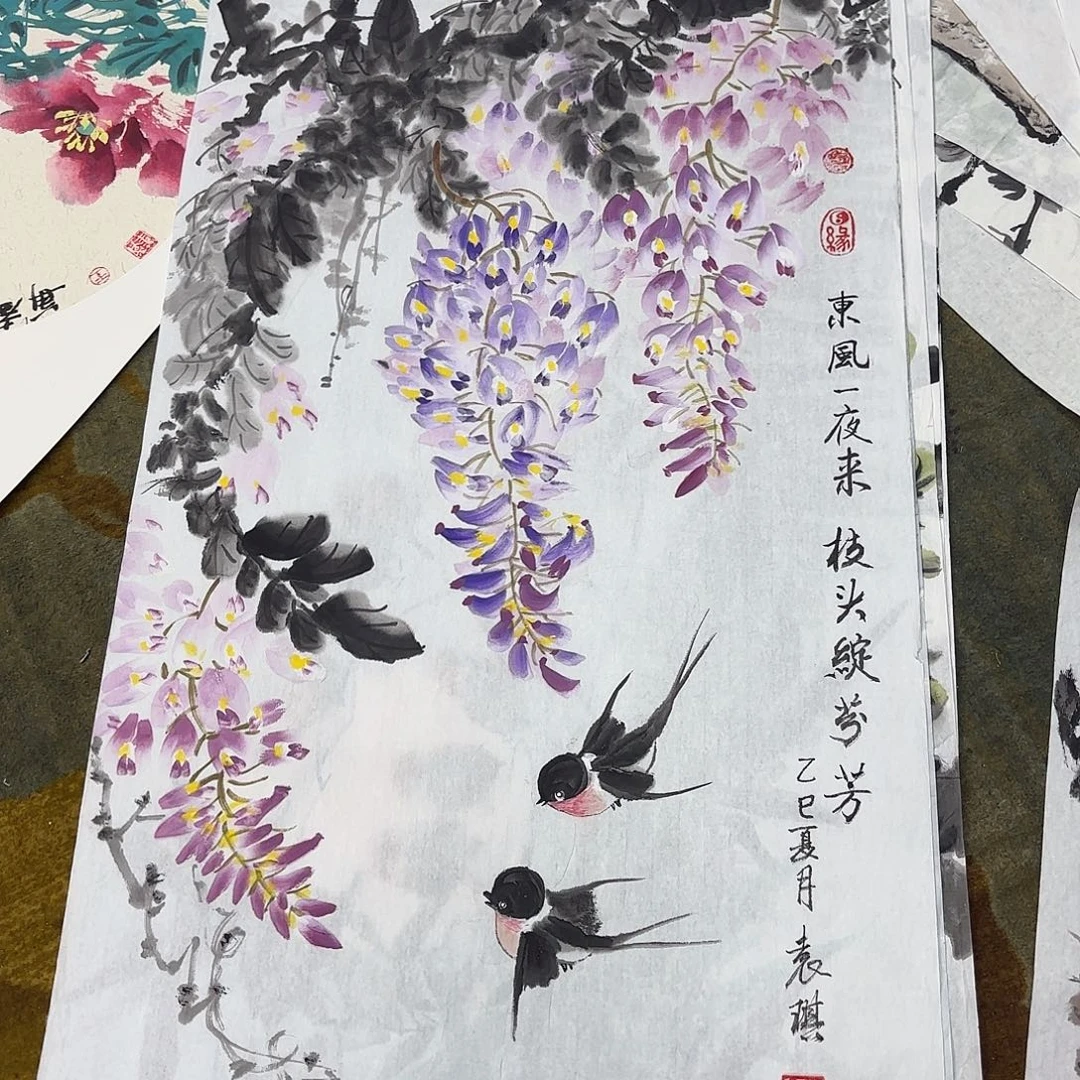 東風一夜来 枝头綻芬芳
乙巳夏月
袁琪
缘